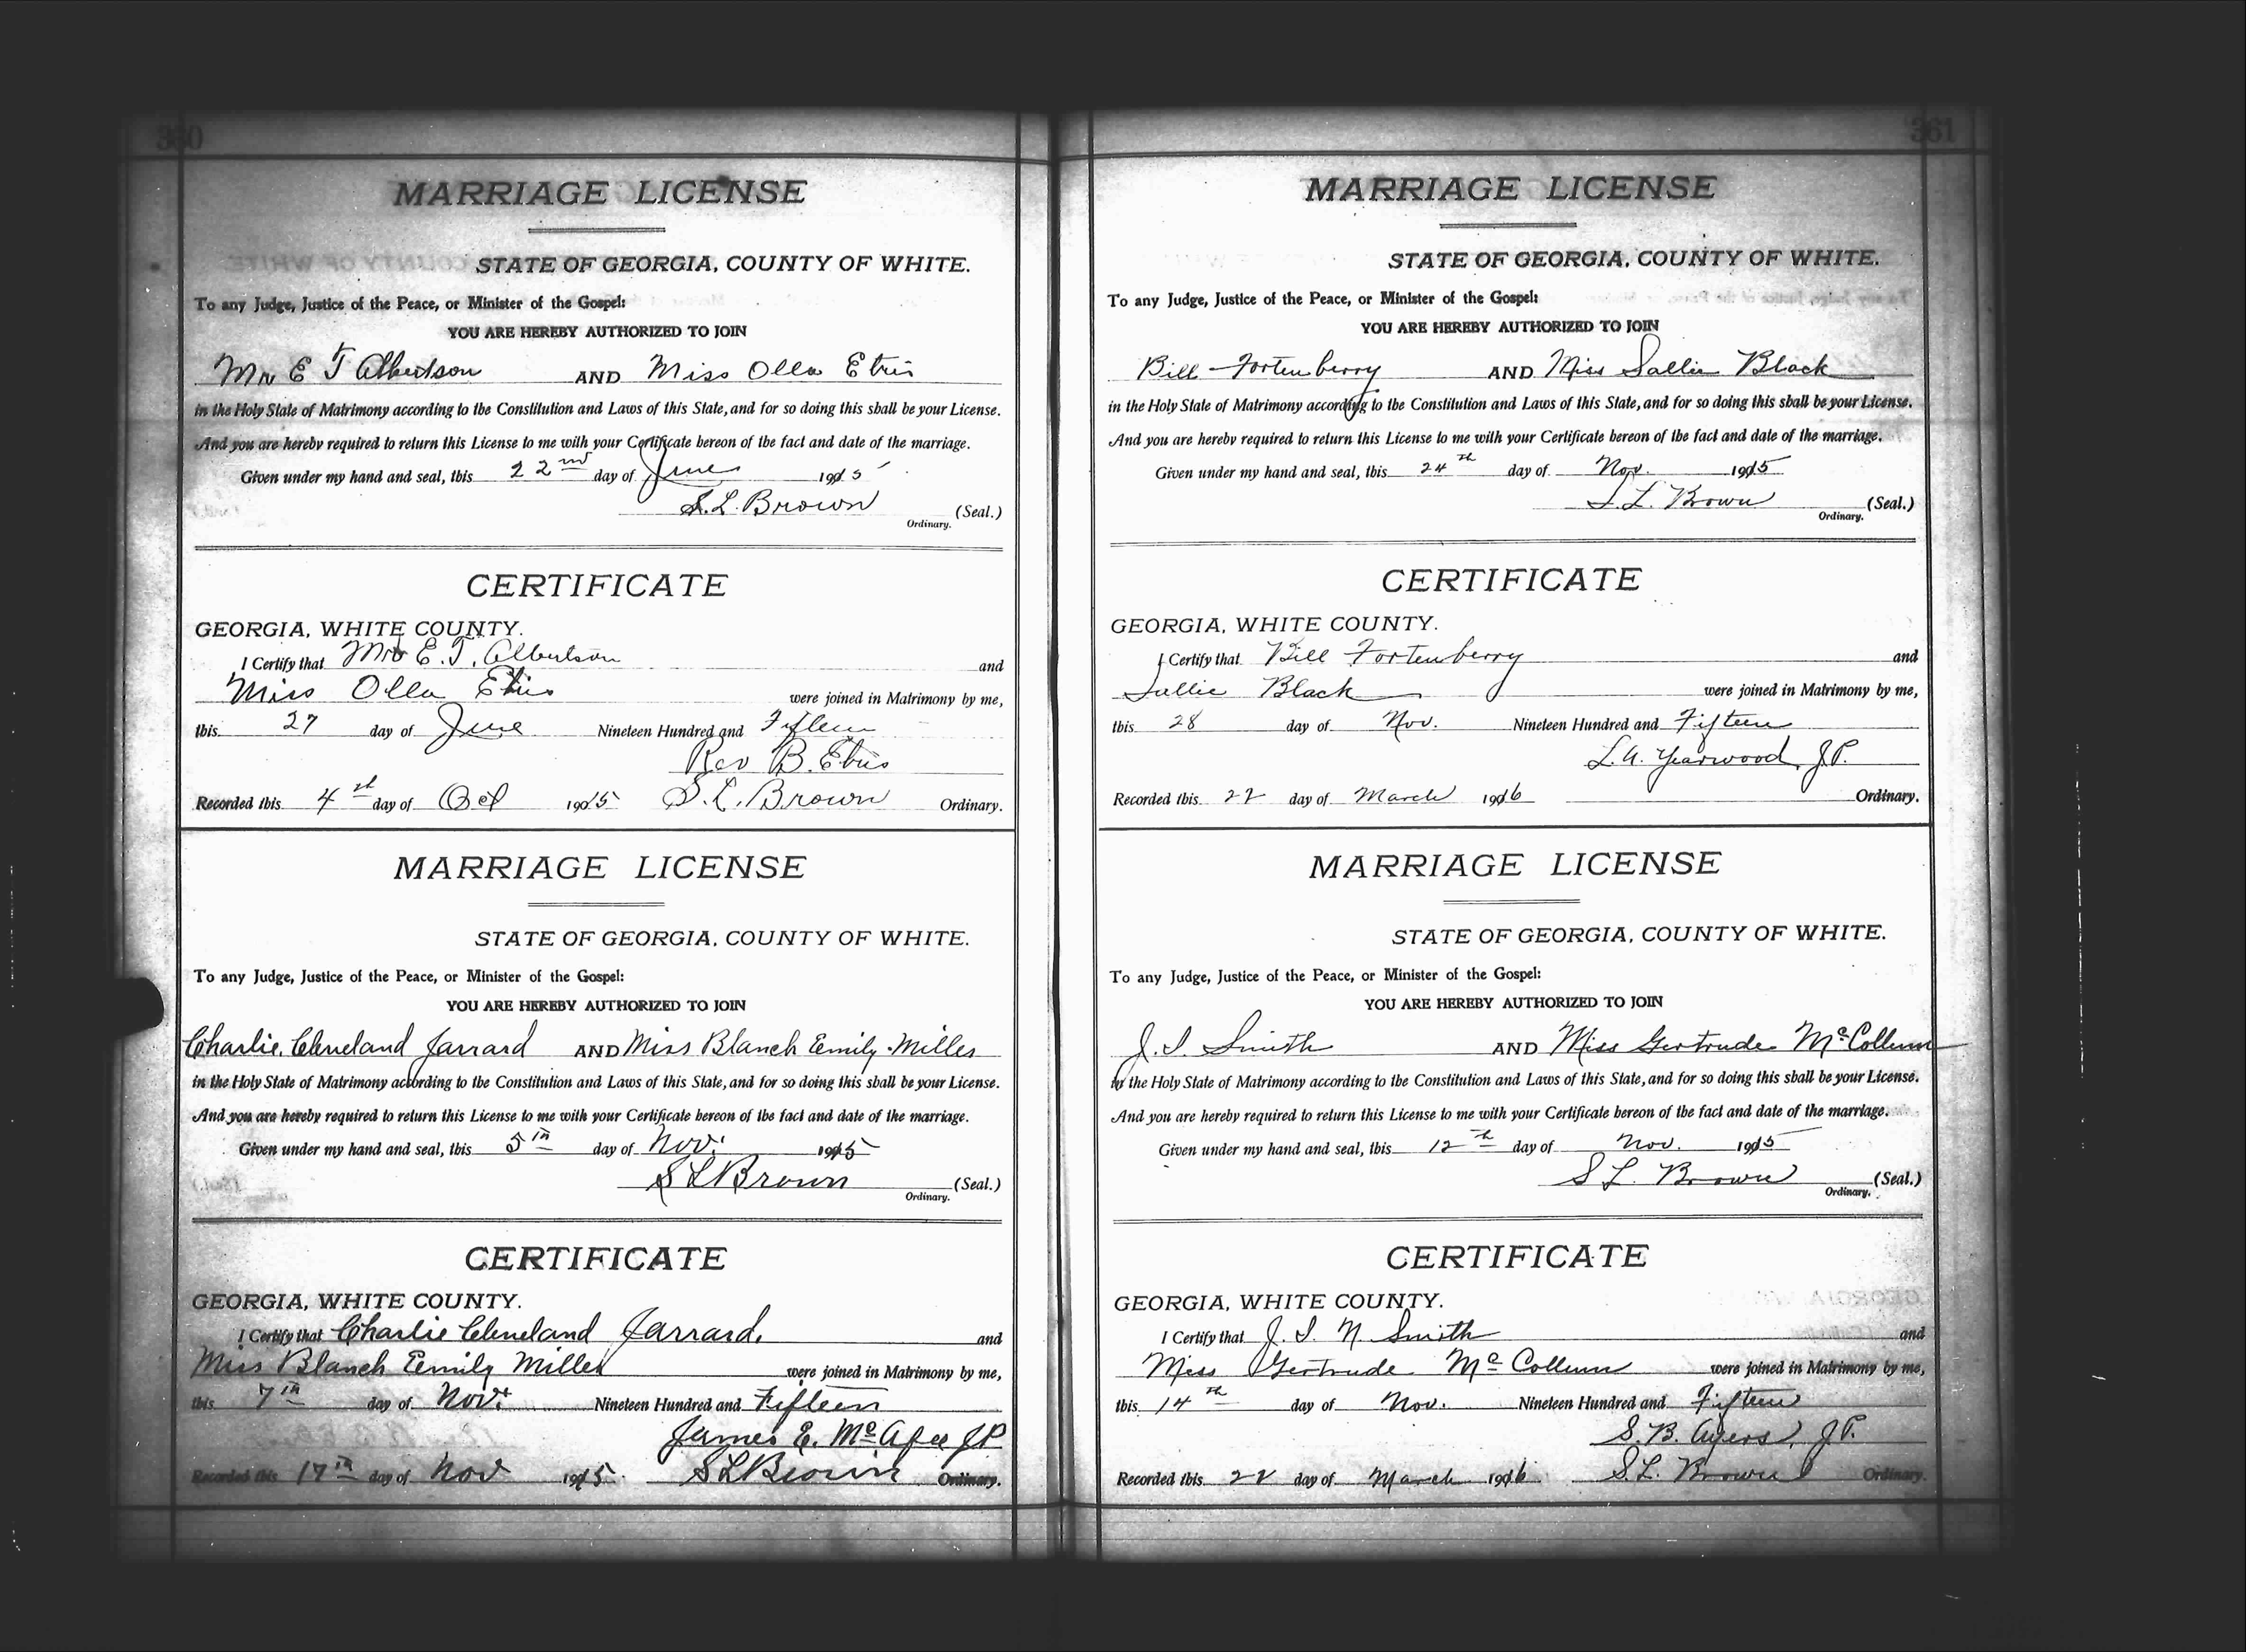 360
MARRIAGE LICENSE
STATE OF GEORGIA, COUNTY OF WHITE.
To any Judge, Justice of the Peace, or Minister of the Gospel:
YOU ARE HEREBY AUTHORIZED TO JOIN
Mr E T Albertson AND Miss Olla Etris
in the Holy State of Matrimony according to the Constitution and Laws of this State, and for so doing this shall be your License.
And you are hereby required to return this License to me with your Certificate hereon of the fact and date of the marriage.
Given under my hand and seal, this 22nd day of June 1915
S. L. Brown (Seal.)
Ordinary.
CERTIFICATE
GEORGIA, WHITE COUNTY.
I Certify that Mr E. T. Albertson and
Miss Olla Etris were joined in Matrimony by me,
this 27 day of June Nineteen Hundred and Fifteen
Rev B. Etris
Recorded this 4th day of Oct 1915 S. L. Brown Ordinary.
MARRIAGE LICENSE
STATE OF GEORGIA, COUNTY OF WHITE.
To any Judge, Justice of the Peace, or Minister of the Gospel:
YOU ARE HEREBY AUTHORIZED TO JOIN
Charlie Cleveland Jarrard AND Miss Blanch Eemily Miller
in the Holy State of Matrimony according to the Constitution and Laws of this State, and for so doing this shall be your License.
And you are hereby required to return this License to me with your Certificate hereon of the fact and date of the marriage.
Given under my hand and seal, this 5th day of Nov. 1915
S L Brown (Seal.)
Ordinary.
CERTIFICATE
GEORGIA, WHITE COUNTY.
I Certify that Charlie Cleveland Jarrard. and
Miss Blanch Eemily Miller were joined in Matrimony by me,
this 7th day of Nov. Nineteen Hundred and Fifteen
James E. McAfee JP
Recorded this 17th day of Nov 1915. S L Brown Ordinary.
361
MARRIAGE LICENSE
STATE OF GEORGIA, COUNTY OF WHITE.
To any Judge, Justice of the Peace, or Minister of the Gospel:
YOU ARE HEREBY AUTHORIZED TO JOIN
Bill Fortenberry AND Miss Sallie Black
in the Holy State of Matrimony according to the Constitution and Laws of this State, and for so doing this shall be your License.
And you are hereby required to return this License to me with your Certificate hereon of the fact and date of the marriage.
Given under my hand and seal, this 24th day of Nov. 1915
S. L. Brown (Seal.)
Ordinary.
CERTIFICATE
GEORGIA, WHITE COUNTY.
I Certify that Bill Fortenberry and
Sallie Black were joined in Matrimony by me,
this 28 day of Nov. Nineteen Hundred and Fifteen
L. A. Yearwood, J.P.
Recorded this 22 day of March 1916 Ordinary.
MARRIAGE LICENSE
STATE OF GEORGIA, COUNTY OF WHITE.
To any Judge, Justice of the Peace, or Minister of the Gospel:
YOU ARE HEREBY AUTHORIZED TO JOIN
J. I. Smith AND Miss Gertrude McCollum
in the Holy State of Matrimony according to the Constitution and Laws of this State, and for so doing this shall be your License.
And you are hereby required to return this License to me with your Certificate hereon of the fact and date of the marriage.
Given under my hand and seal, this 12th day of Nov. 1915
S L. Brown (Seal.)
Ordinary.
CERTIFICATE
GEORGIA, WHITE COUNTY.
I Certify that J. I. N. Smith and
Miss Gertrude McCollum were joined in Matrimony by me,
this 14th day of Nov. Nineteen Hundred and Fifteen
S. B. Ayers, J.P.
Recorded this 22 day of March 1916 S. L. Brown Ordinary.